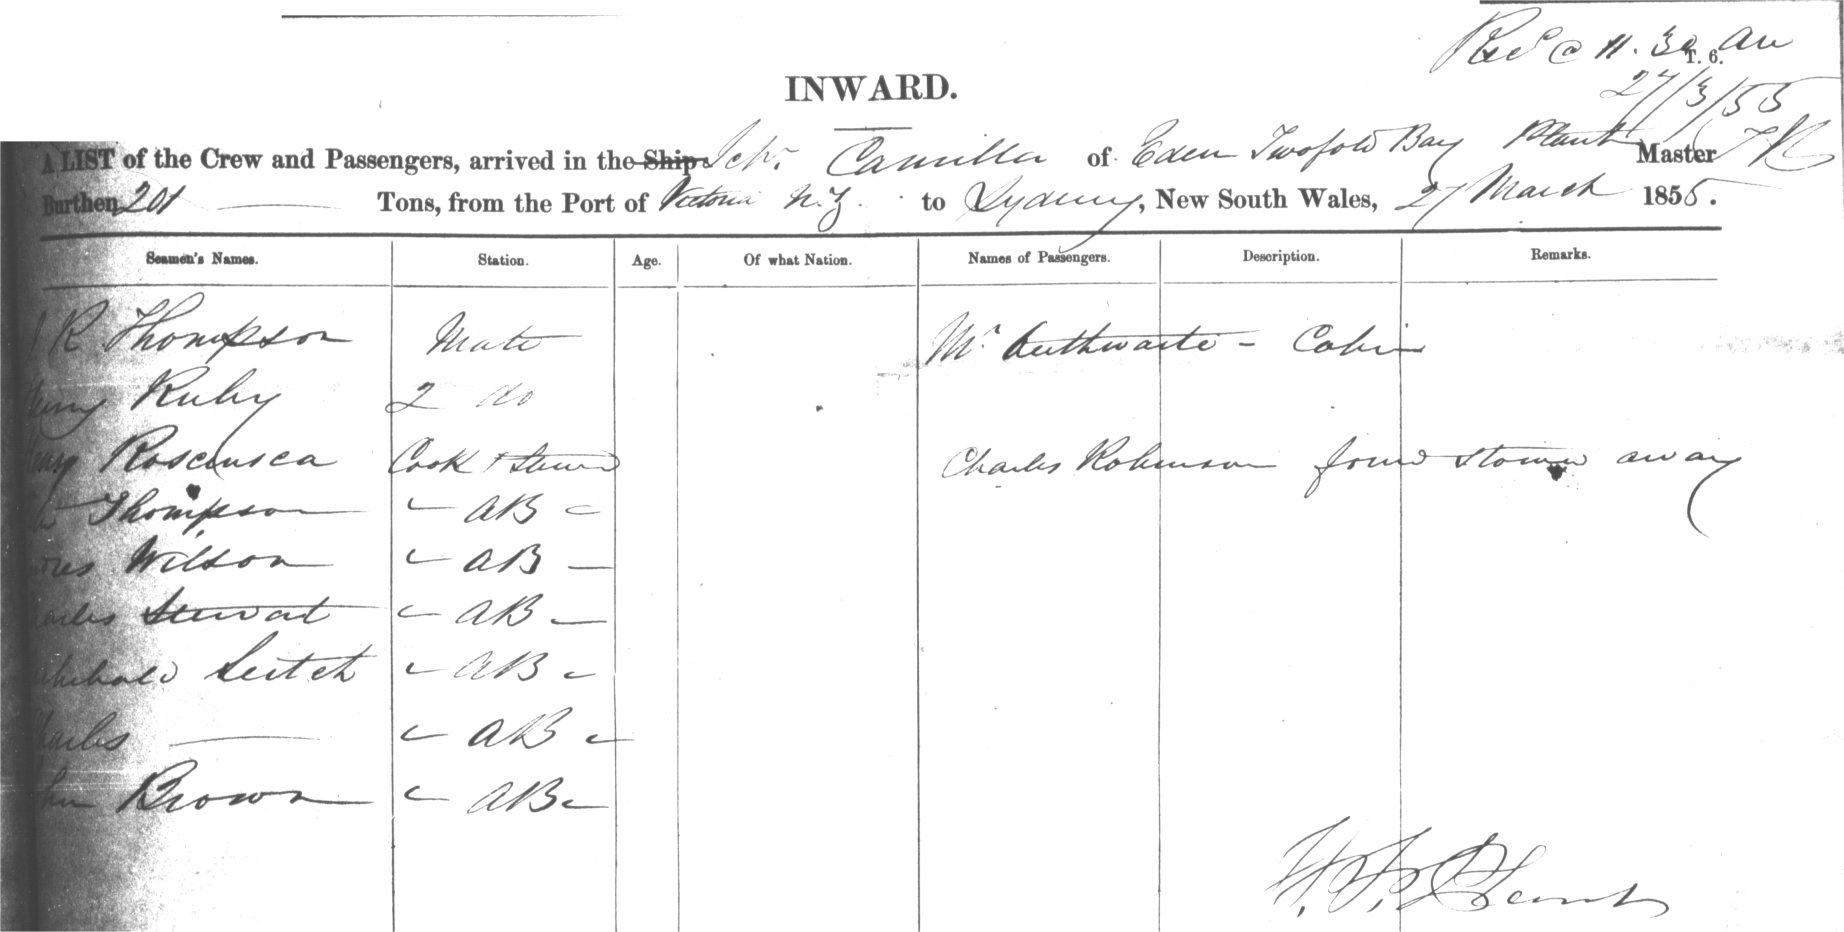 Recd @ 11.30 am
T. 6.
27/3/55
INWARD.
A LIST of the Crew and Passengers, arrived in the Ship Schr. Camilla of Eden Twofold Bay Master
Burthen 201 Tons, from the Port of Victoria N.Z. to Sydney, New South Wales, 27 March 1855.
Seamen's Names. Station. Age. Of what Nation. Names of Passengers. Description. Remarks.
R Thompson Mate Mr - Cabin
Ruby 2 do
Cook + Charles Robinson found away
Thompson AB
Wilson AB
Stewart AB
Leitch AB
AB
Brown AB